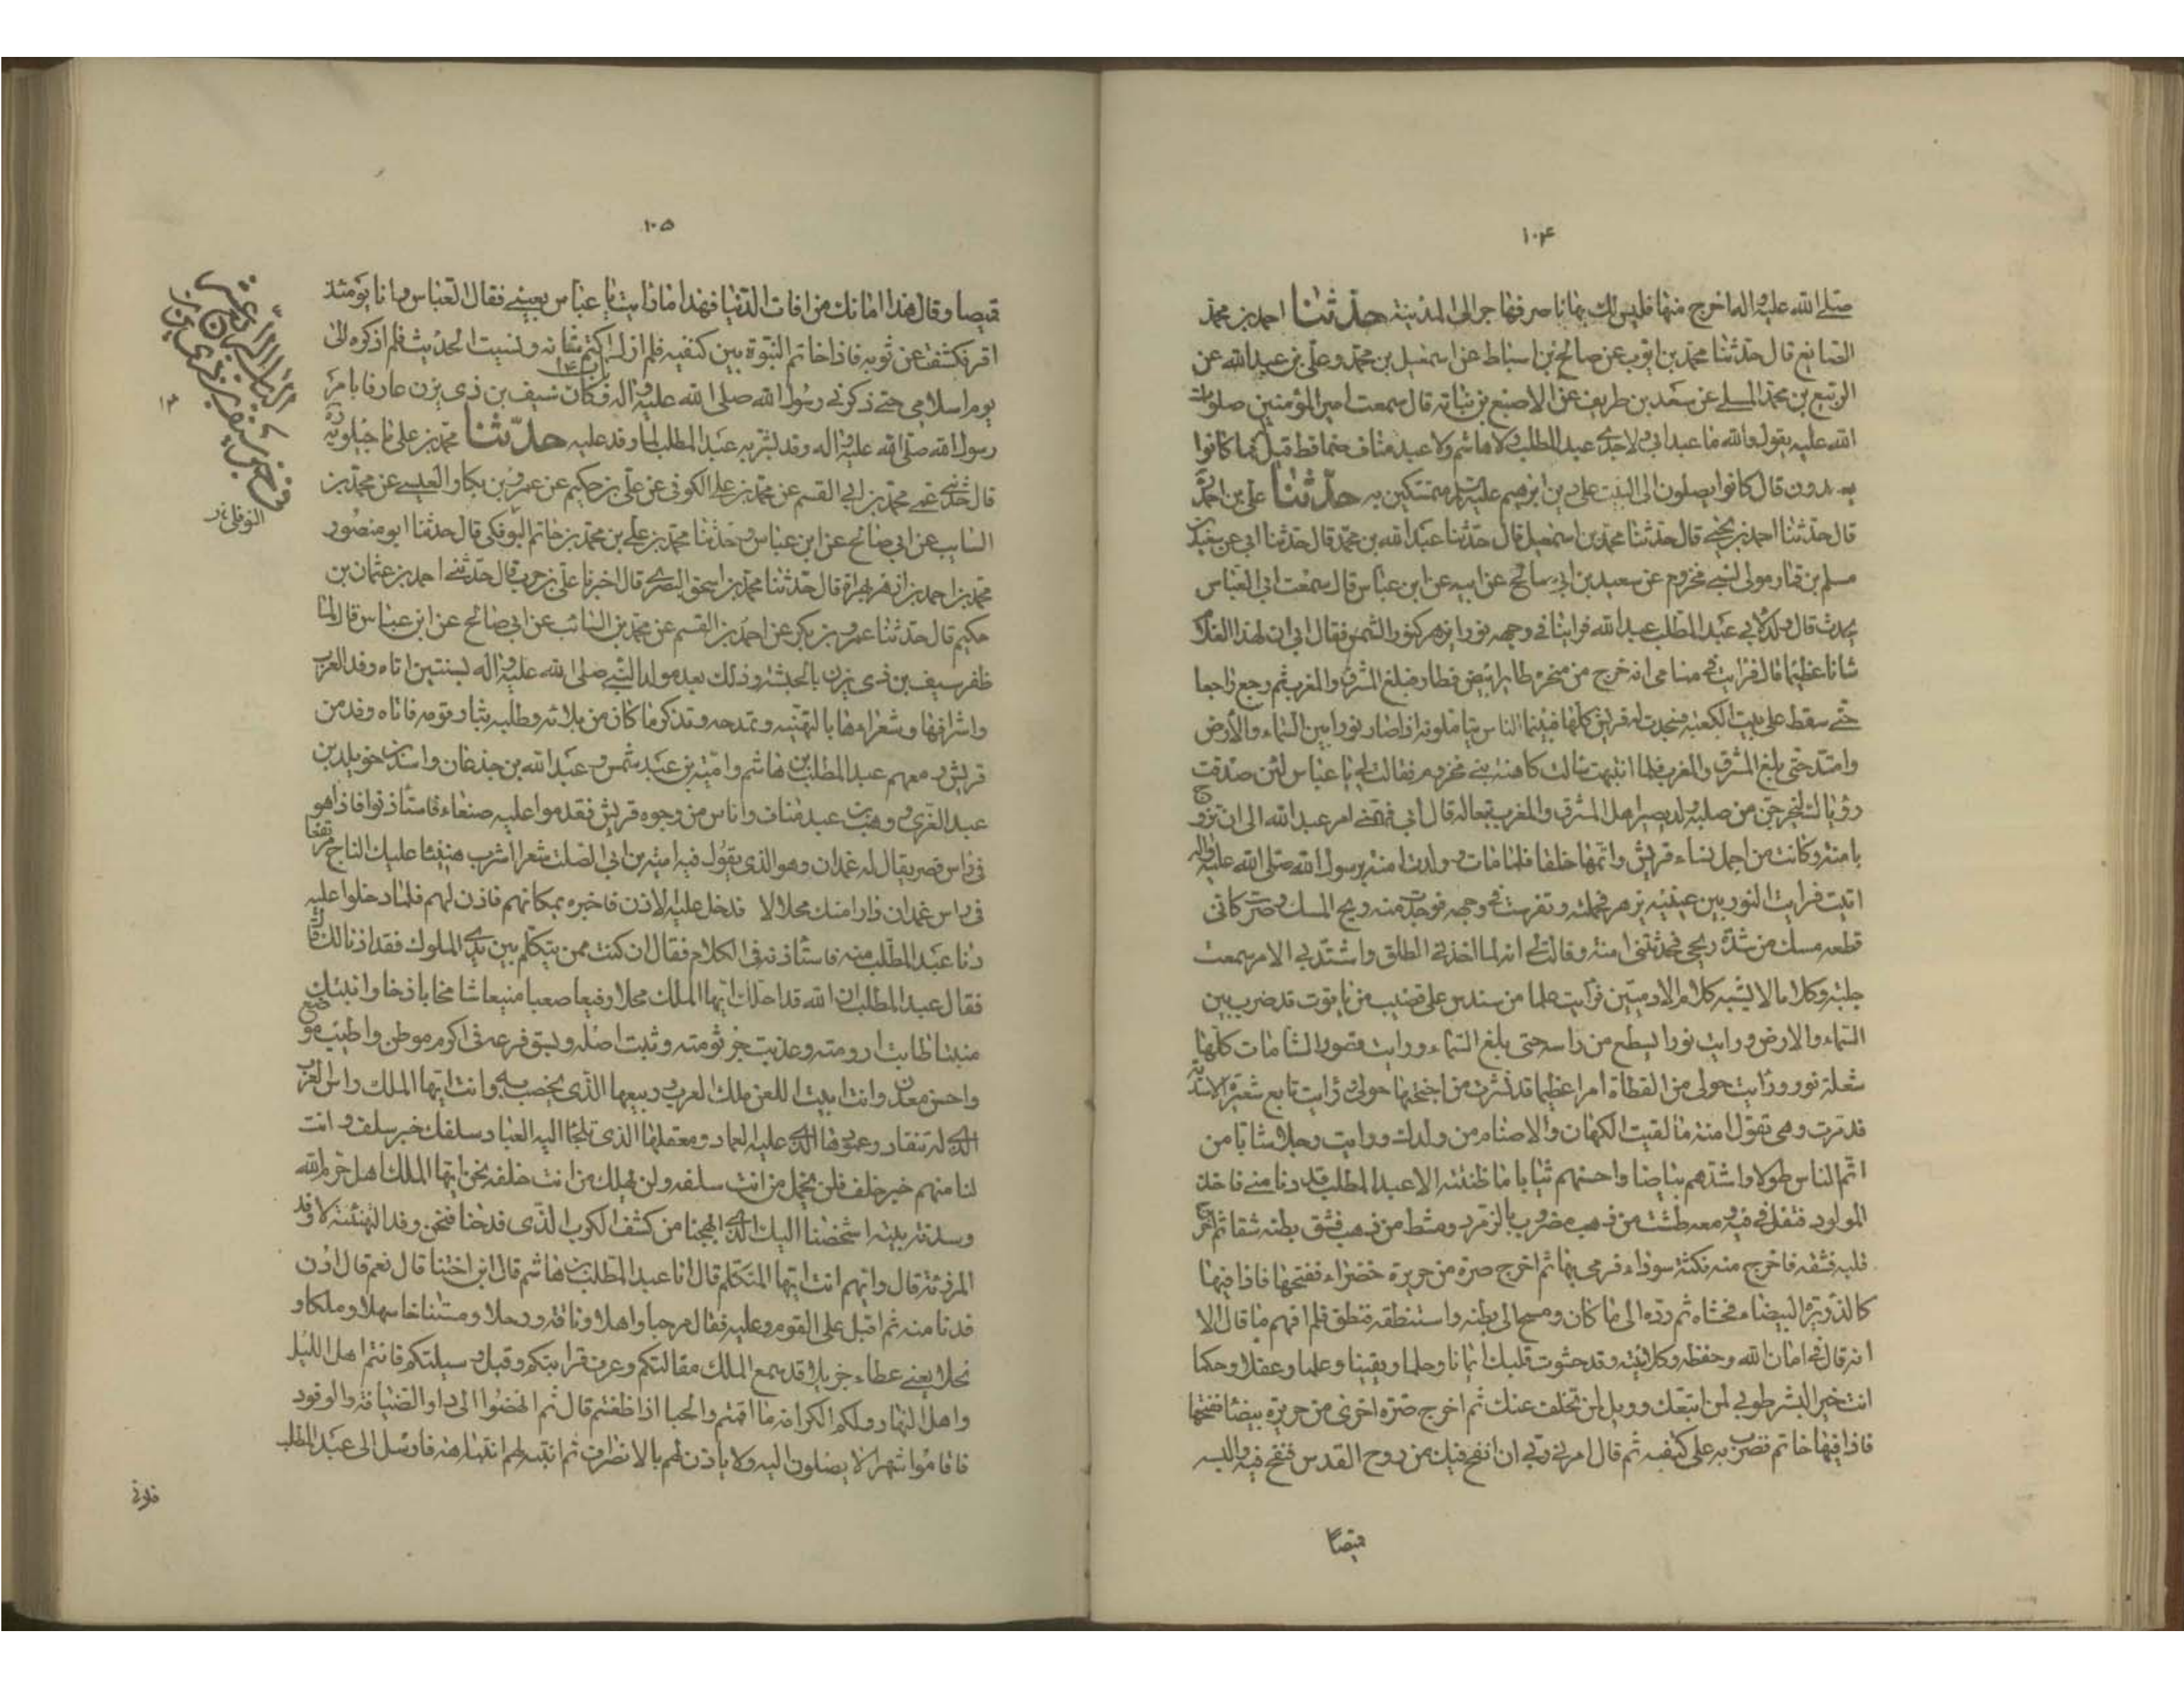 ۱۰۴
صلى الله عليه واله اخرج منها فليس لك بها فانصرف فهاجر الى المدينة حدّثنا احمد بن محمّد
الصايغ قال حدثنا محمد بن ايوب عن صالح بن اسباط عن اسمعيل بن محمد وعلى بن عبد الله عن
الربيع بن محمد المسلى عن سعد بن طريف عن الاصبغ بن نباته قال سمعت امير المؤمنين صلوات
الله عليه يقول والله ما عبد ابى ولا جدى عبد المطلب ولا هاشم ولا عبد مناف صنما قط قيل فما كانوا
يعبدون قال كانوا يصلون الى البيت على دين ابرهيم عليه السلم متمسكين به حدّثنا على بن احمد
قال حدثنا احمد بن يحيى قال حدثنا محمد بن اسمعيل قال حدثنا عبد الله بن محمد قال حدثنا ابى عن سعيد بن
مسلم بن قمار مولى لبنى مخزوم عن سعيد بن ابى صالح عن ابيه عن ابن عباس قال سمعت ابى العباس
يحدث قال ولد لابى عبد المطلب عبد الله فراينا فى وجهه نورا يزهر كنور الشمس فقال ابى ان لهذا الغلام
شانا عظيما قال فرايت فى منامى انه خرج من منخره طاير ابيض فطار فبلغ المشرق والمغرب ثم رجع راجعا
حتى سقط على بيت الكعبة فسجدت له قريش كلها فبينما الناس يتاملونه اذ صار نورا بين السماء والأرض
وامتد حتى بلغ المشرق والمغرب فلما انتبهت سالت كاهنة بنى مخزوم فقالت لى يا عباس لئن صدقت
رؤياك ليخرجن من صلبه ولد يصير اهل المشرق والمغرب تبعا له قال ابى فهمنى امر عبد الله الى ان تزوج
بامنة وكانت من اجمل نساء قريش واتمها خلقا فلما مات وولدت امنة رسول الله صلى الله عليه واله
اتيت فرايت النور بين عينيه يزهر فحملته وتفرست فى وجهه فوجدت منه ريح المسك وصرت كانى
قطعه مسك من شدة ريحى فحدثتنى امنة وقالت لى انه لما اخذنى الطلق واشتد بى الامر سمعت
جلبة وكلاما لا يشبه كلام الادميين فرايت علما من سندس على قضيب من ياقوت قد ضرب بين
السماء والارض ورايت نورا يسطع من راسه حتى بلغ السماء ورايت قصور الشامات كلها
شعلة نور ورايت حولى من القطاة امرا عظيما قد نشرت من اجنحتها حولى ورايت تابع شعيرة الاسدية
قد مرت وهى تقول امنة ما لقيت الكهان والاصنام من ولدك ورايت رجلا شابا من
اتم الناس طولا واشدهم بياضا واحسنهم ثيابا ما ظننته الا عبد المطلب قد دنا منى فاخذ
المولود فتفل فى فيه ومعه طشت من ذهب مضروب بالزمرد ومشط من ذهب فشق بطنه شقا ثم اخرج
قلبه فشقه فاخرج منه نكتة سوداء فرمى بها ثم اخرج صرة من حريرة خضراء ففتحها فاذا فيها
كالذريرة البيضاء فحشاه ثم رده الى ما كان ومسح الى بطنه واستنطقه فنطق فلم افهم ما قال الا
انه قال فى امان الله وحفظه وكلائته وقد حشوت قلبك ايمانا وحلما ويقينا وعلما وعقلا وحكما
انت خير البشر طوبى لمن اتبعك وويل لمن تخلف عنك ثم اخرج صرة اخرى من حريرة بيضا ففتحها
فاذا فيها خاتم فضرب به على كتفيه ثم قال امرنى ربى ان انفخ فيك من روح القدس فنفخ فيه والبسه
قميصا
۱۰۵
قميصا وقال هذا امانك من افات الدنيا فهذا ما رايت يا عباس بعينى فقال العباس وانا يومئذ
اقر فكشفت عن ثوبه فاذا خاتم النبوة بين كتفيه فلم ازل اكتم شانه ونسيت الحديث فلم اذكره الى
يوم اسلامى حتى ذكرنى رسول الله صلى الله عليه واله وكان سيف بن ذى يزن عارفا بامر
رسول الله صلى الله عليه واله وقد بشر به عبد المطلب لما وفد عليه حدّثنا محمد بن على ماجيلويه
قال حدثنى عمى محمد بن ابى القسم عن محمد بن على الكوفى عن على بن حكيم عن عمرو بن بكار العبسى عن محمد بن
السايب عن ابى صالح عن ابن عباس وحدثنا محمد بن على بن محمد بن حاتم البوفكى قال حدثنا ابو منصور
محمد بن احمد بن ازهر بهراة قال حدثنا محمد بن اسحق البصرى قال اخبرنا على بن حرب قال حدثنى احمد بن عثمان بن
حكيم قال حدثنا عمرو بن بكر عن احمد بن القسم عن محمد بن السائب عن ابى صالح عن ابن عباس قال لما
ظفر سيف بن ذى يزن بالحبشة وذلك بعد مولد النبى صلى الله عليه واله بسنتين اتاه وفد العرب
واشرافها وشعراءها بالتهنية وتمدحه وتذكر ما كان من بلائه وطلبه بثار قومه فاتاه وفد من
قريش ومعهم عبد المطلب بن هاشم وامية بن عبد شمس وعبد الله بن جذعان واسد بن خويلد بن
عبد العزى ووهب بن عبد مناف واناس من وجوه قريش فقدموا عليه صنعاء فاستأذنوا فاذا هو
فى راس قصر يقال له غمدان وهو الذى يقول فيه امية بن ابى الصلت شعر اشرب هنيئا عليك التاج مرتفعا
فى راس غمدان دارا منك محلالا فدخل عليه الاذن فاخبره بمكانهم فاذن لهم فلما دخلوا عليه
دنا عبد المطلب منه فاستأذنه فى الكلام فقال ان كنت ممن يتكلم بين يدى الملوك فقد اذنا لك قال
فقال عبد المطلب ان الله قد احلك ايها الملك محلا رفيعا صعبا منيعا شامخا باذخا وانبتك
منبتا طابت ارومته وعذبت جرثومته وثبت اصله وبسق فرعه فى اكرم موطن واطيب موضع
واحسن معدن وانت ابيت اللعن ملك العرب وربيعها الذى يخصب به وانت ايها الملك راس العرب
الذى له تنقاد وعمودها الذى عليه العماد ومعقلها الذى يلجأ اليه العباد سلفك خير سلف وانت
لنا منهم خير خلف فلن يخمل من انت سلفه ولن يهلك من انت خلفه نحن ايها الملك اهل حرم الله
وسدنة بيته اشخصنا اليك الذى ابهجنا من كشف الكرب الذى فدحنا فنحن وفد التهنئة لا وفد
المرزئة قال وايهم انت ايها المتكلم قال انا عبد المطلب بن هاشم قال ابن اختنا قال نعم قال ادن
فدنا منه ثم اقبل على القوم وعليه فقال مرحبا واهلا وناقة ورحلا ومستناخا سهلا وملكا و
نحلا يعنى عطاء جزيلا قد سمع الملك مقالتكم وعرف قرابتكم وقبل وسيلتكم فانتم اهل الليل
واهل النهار ولكم الكرامة ما اقمتم والحبا اذا ظعنتم قال ثم انهضوا الى دار الضيافة والوفود
فاقاموا شهرا لا يصلون اليه ولا ياذن لهم بالانصراف ثم انتبه لهم انتباهة فارسل الى عبد المطلب
النوفلى